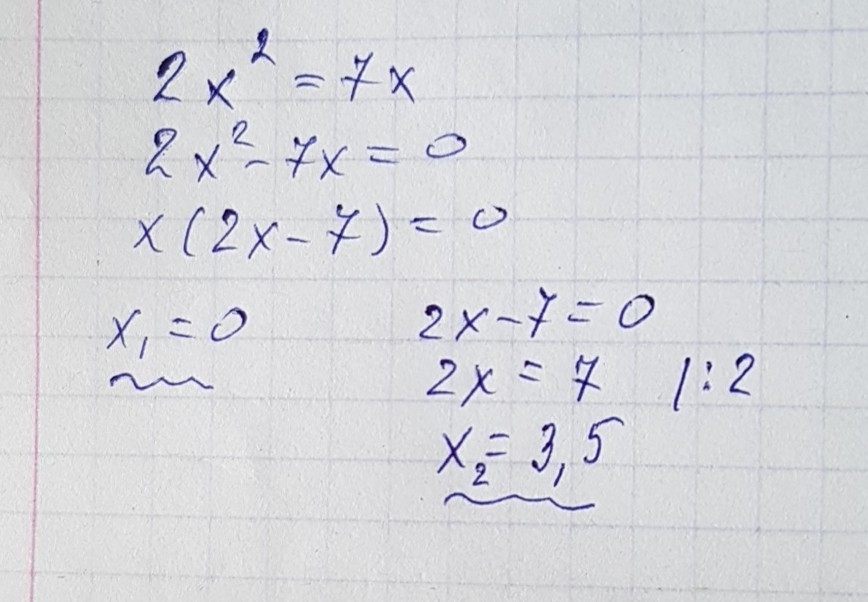 2x² = 7x
2x² - 7x = 0
x(2x - 7) = 0
x₁ = 0
2x - 7 = 0
2x = 7 |:2
x₂ = 3,5